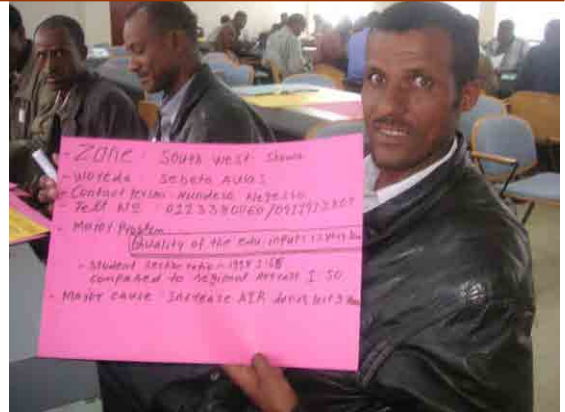 - Zone : South west Showa
- Woreda : Sebeta Awas
- Contact Person Hundesa Negessa
- Tell No 0113380060/
- Major Problem
Quality of the edu. inputs is very low
- student section ratio 1998 1:68
compared to regional 1 50
- Major cause : Increase AIR last 3